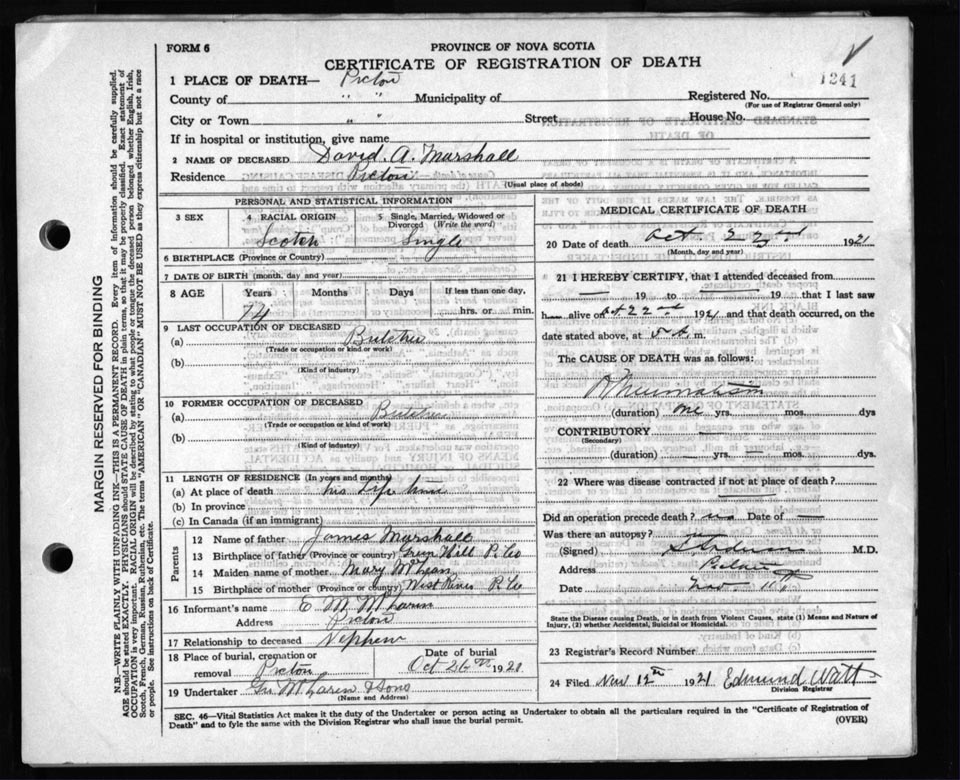 FORM 6
PROVINCE OF NOVA SCOTIA
CERTIFICATE OF REGISTRATION OF DEATH
1241
1 PLACE OF DEATH— Pictou
County of " " Municipality of
Registered No.
(For use of Registrar General only)
City or Town " " Street House No.
If in hospital or institution, give name
2 NAME OF DECEASED David. A. Marshall
Residence Pictou
(Usual place of abode)
PERSONAL AND STATISTICAL INFORMATION
3 SEX
4 RACIAL ORIGIN
Scotch
5 Single, Married, Widowed or Divorced (Write the word)
Single
6 BIRTHPLACE (Province or Country)
7 DATE OF BIRTH (month, day and year)
8 AGE Years Months Days If less than one day,
74 hrs. or min.
9 LAST OCCUPATION OF DECEASED
(a) Butcher
(Trade or occupation or kind of work)
(b)
(Kind of industry)
10 FORMER OCCUPATION OF DECEASED
(a) Butcher
(Trade or occupation or kind of work)
(b)
(Kind of industry)
11 LENGTH OF RESIDENCE (In years and months)
(a) At place of death his life time
(b) In province
(c) In Canada (if an immigrant)
Parents
12 Name of father James Marshall
13 Birthplace of father (Province or country) Green Hill P. Co
14 Maiden name of mother Mary McLean
15 Birthplace of mother (Province or country) West River P. Co
16 Informant's name C. M. McLaren
Address Pictou
17 Relationship to deceased Nephew
18 Place of burial, cremation or removal Pictou
Date of burial
Oct 26th 1921
19 Undertaker McLaren & Sons
(Name and Address)
MEDICAL CERTIFICATE OF DEATH
20 Date of death Oct. 22nd 1921
(Month, day and year)
21 I HEREBY CERTIFY, that I attended deceased from
— 19 to — 19 that I last saw
h alive on Oct 22nd 1921 and that death occurred, on the
date stated above, at 5 A m.
The CAUSE OF DEATH was as follows:
Rheumatism
(duration) one yrs. mos. dys
CONTRIBUTORY —
(Secondary)
(duration) yrs. — mos. dys.
22 Where was disease contracted if not at place of death?
Did an operation precede death? no Date of —
Was there an autopsy? no
(Signed) M.D.
Address Pictou
Date Nov. 11th
State the Disease causing Death, or in death from Violent Causes, state (1) Means and Nature of Injury, (2) whether Accidental, Suicidal or Homicidal.
23 Registrar's Record Number
24 Filed Nov 12th 1921 Edmund Watt
Division Registrar
SEC. 46—Vital Statistics Act makes it the duty of the Undertaker or person acting as Undertaker to obtain all the particulars required in the "Certificate of Registration of
Death" and to fyle the same with the Division Registrar who shall issue the burial permit.
(OVER)
MARGIN RESERVED FOR BINDING
N.B.—WRITE PLAINLY WITH UNFADING INK—THIS IS A PERMANENT RECORD. Every item of information should be carefully supplied.
AGE should be stated EXACTLY. PHYSICIANS should STATE CAUSE OF DEATH in plain terms, so that it may be properly classified. Exact statement of
OCCUPATION is very important. RACIAL ORIGIN will be described by stating to what people or tongue the deceased person belonged whether English, Irish,
Scotch, French, German, Russian, Ruthenian, etc. The terms "AMERICAN" OR "CANADIAN" MUST NOT BE USED as they express citizenship but not a race
or people. See instructions on back of Certificate.